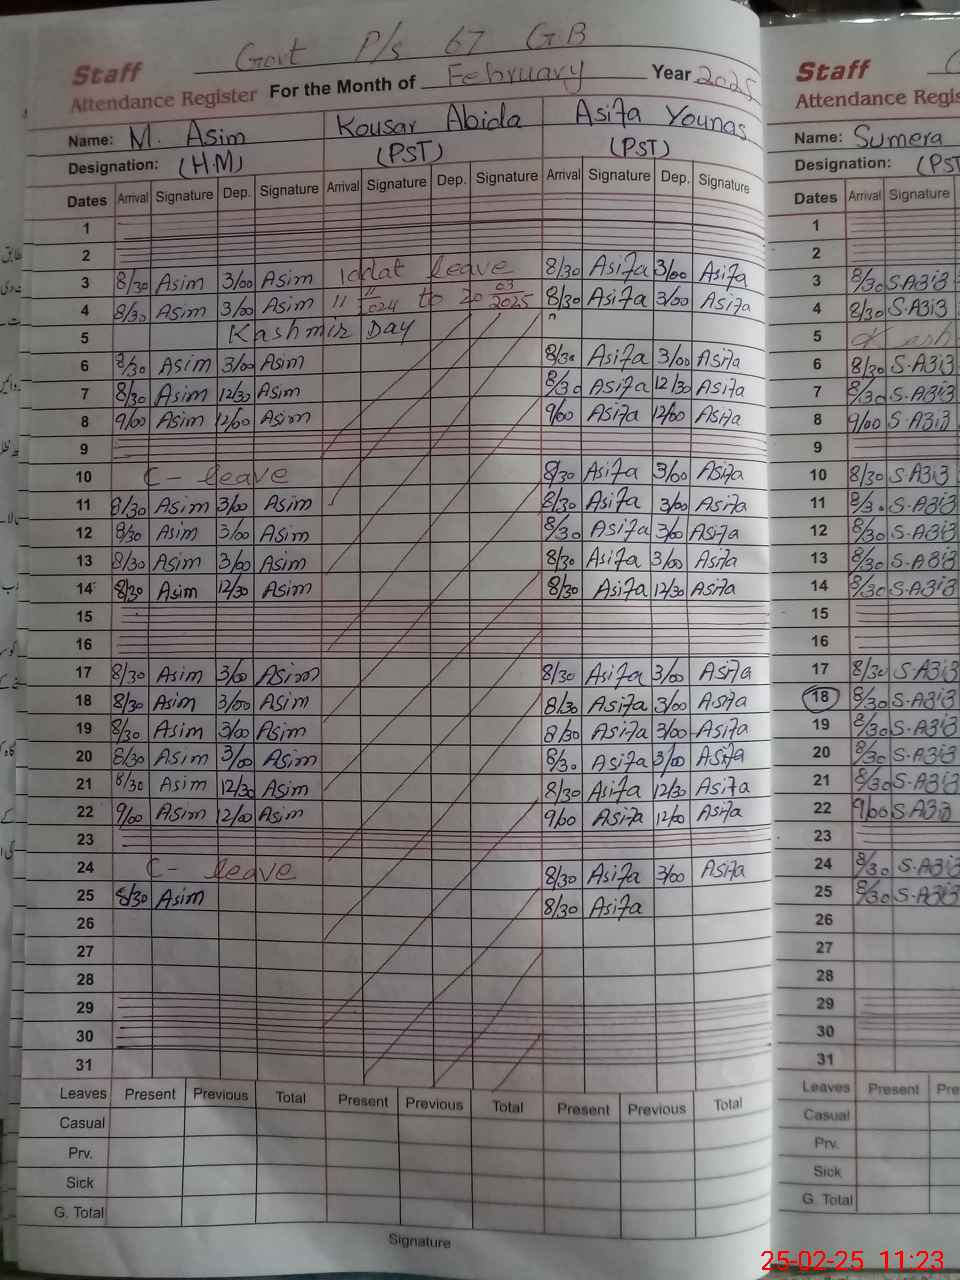 Govt P/s 67 GB
Staff
Attendance Register For the Month of February Year 2025
Name: M. Asim Kousar Abida Asifa Younas
Designation: (H.M) (PST) (PST)
Dates Arrival Signature Dep. Signature Arrival Signature Dep. Signature Arrival Signature Dep. Signature
1
2
3 8/30 Asim 3/00 Asim Iddat leave 8/30 Asifa 3/00 Asifa
4 8/30 Asim 3/00 Asim to 20 03 2025 8/30 Asifa 3/00 Asifa
5 Kashmir Day
6 8/30 Asim 3/00 Asim 8/30 Asifa 3/00 Asifa
7 8/30 Asim 12/30 Asim 8/30 Asifa 12/30 Asifa
8 9/00 Asim 12/00 Asim 9/00 Asifa 12/00 Asifa
9
10 C- leave 8/30 Asifa 3/00 Asifa
11 8/30 Asim 3/00 Asim 8/30 Asifa 3/00 Asifa
12 8/30 Asim 3/00 Asim 8/30 Asifa 3/00 Asifa
13 8/30 Asim 3/00 Asim 8/30 Asifa 3/00 Asifa
14 8/30 Asim 12/30 Asim 8/30 Asifa 12/30 Asifa
15
16
17 8/30 Asim 3/00 Asim 8/30 Asifa 3/00 Asifa
18 8/30 Asim 3/00 Asim 8/30 Asifa 3/00 Asifa
19 8/30 Asim 3/00 Asim 8/30 Asifa 3/00 Asifa
20 8/30 Asim 3/00 Asim 8/30 Asifa 3/00 Asifa
21 8/30 Asim 12/30 Asim 8/30 Asifa 12/30 Asifa
22 9/00 Asim 12/00 Asim 9/00 Asifa 12/00 Asifa
23
24 C- leave 8/30 Asifa 3/00 Asifa
25 8/30 Asim 8/30 Asifa
26
27
28
29
30
31
Leaves Present Previous Total Present Previous Total Present Previous Total
Casual
Prv.
Sick
G. Total
Signature
Staff
Attendance Regis
Name: Sumera
Designation: (PST
Dates Arrival Signature
1
2
3 8/30 S.A3i3
4 8/30 S.A3i3
5 Kash
6 8/30 S.A3i3
7 8/30 S.A3i3
8 9/00 S.A3i3
9
10 8/30 S.A3i3
11 8/30 S.A3i3
12 8/30 S.A3i3
13 8/30 S.A3i3
14 8/30 S.A3i3
15
16
17 8/30 S.A3i3
18 8/30 S.A3i3
19 8/30 S.A3i3
20 8/30 S.A3i3
21 8/30 S.A3i3
22 9/00 S.A3i3
23
24 8/30 S.A3i3
25 8/30 S.A3i3
26
27
28
29
30
31
Leaves Present Pre
Casual
Prv.
Sick
G. Total
25-02-25 11:23